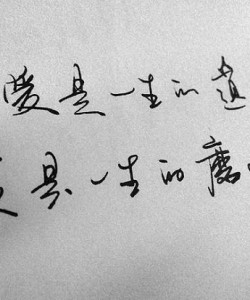 愛是一生的
是一生的磨